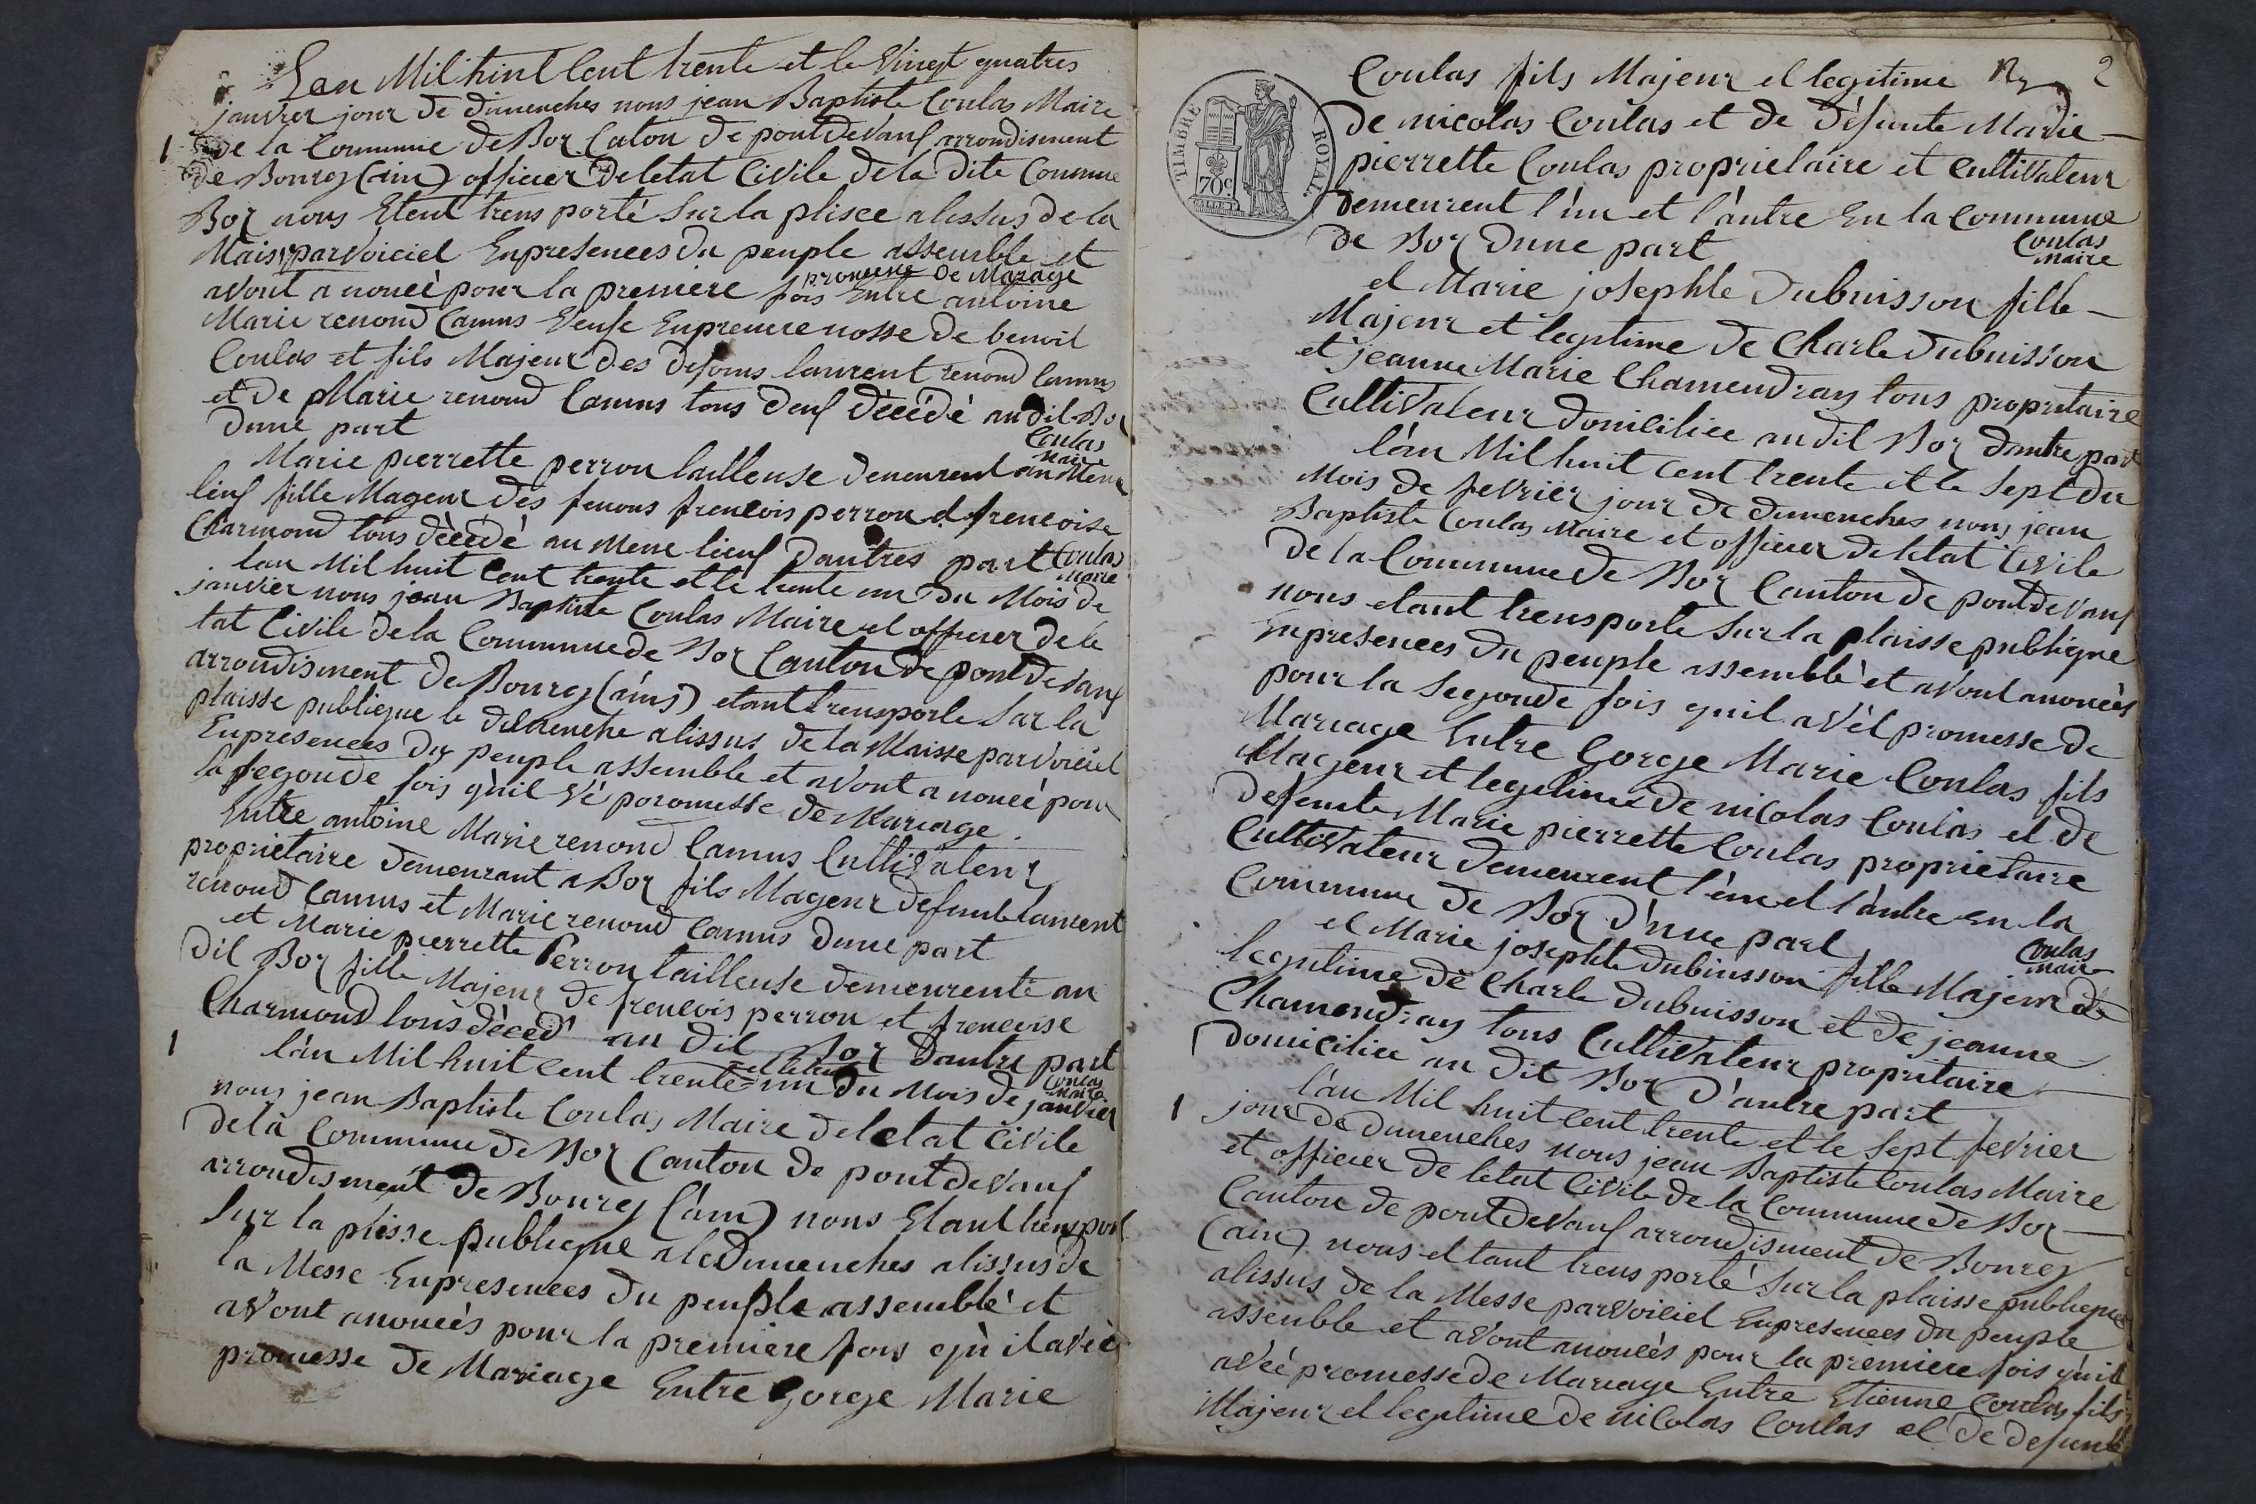 Lan Mil huit Cent trente et le Vingt quatres
janvier jour de dimenches nous jean Baptiste Coulas Maire
1 de la Commune de Boz Caton de pontdevauf arrondisment
de Bourg (ain) officier deletat Civile dela dite Commune
Boz nous Etent trens porté Sur la plisce alissus de la
Maiss parvoiciel Enpresences du peuple assemblé et
promesse de Mariage
avont anoncé pour la premiere fois Entre antoine
Marie renoud Camus Veufe Enpremiere nosse de benoit
Coulas et fils Majeur des defonts laurent renoud Camus
et de Marie renoud Camus tous deuf décédé audit Boz
dune part
Coulas
Maire
Marie pierrette perron tailleuse demeurent au Meme
lieuf fille Mageur des feuous frencois perron et frencoise
Charmond tous décédé au Meme lieuf dautres part Coulas
Maire
lan Mil huit Cent trente et le trente un du Mois de
janvier nous jean Baptiste Coulas Maire et officier de le
tat Civile dela Commune de Boz Canton de pont devauf
arrondisment de Bourg (ains) etant trensporte Sur la
plaisse publicque le dimenche alissus de la Maisse parvoiciel
Enpresences du peuple assemble et avont anoncé pour
la segonde fois qùil vé poromesse de Mariage
Entre antoine Marie renoud Camus Cultivateur
proprietaire demeurant a Boz fils Mageur defunt laurent
renoud Camus et Marie renoud Camus dune part
et Marie pierrette Perron tailleuse demeurente au
dit Boz fille Majeur de frencois perron et frencoise
Charmond tous décéd au dit Boz dautre part
Coulas
Maire
1 làn Mil huit cent trente un du Mois de janvier
nous jean Baptiste Coulas Maire deletat Civile
delà Commune de Boz Canton de pontdevauf
arrondisment de Bourg (ain) nous Etant trensport
Sur la plisse publicque aledimenches alissus de
la Messe Enpresences du peuple assemblé et
avont anoncés pour la premiere fois qù il avéé
promesse de Mariage Entre Gorge Marie
2
Coulas fils Majeur et legitime
TIMBRE ROYAL
70c
de nicolas Coulas et de défunte Marie
pierrette Coulas proprietaire et Cultivateur
demeurent l'ùn et l'àutre En la Commune
de Boz dune part
Coulas
Maire
et Marie josephte dubuisson fille
Majeur et legitime de Charle dubuisson
et jeanne Marie Chamendray tous propretaire
Cultivateur domicilice audit Boz dautre part
l'àn Mil huit Cent trente et le Sept du
Mois de fevrier jour de dimenches nous jean
Baptiste Coulas Maire et officier de letat Civile
de la Commune de Boz Canton de pontdevauf
nous etant trensporte Sur la plaisse publicque
Enpresences du peuple assemblé et avont anoncés
pour la Segonde fois quil avét promesse de
Mariage Entre Gorge Marie Coulas fils
Mageur et legitimes de nicolas Coulas et de
defunte Marie pierrette Coulas proprietaire
Cultivateur demeurent l'ùn et l'àutre En la
Commune de Boz d'une part
Coulas
Maire
et Marie josephte dubuisson fille Majeur de
legitime de Charle dubuisson et de jeanne
Chamendray tous Cultivateur propritaire
domicilice au dit Boz D'autre part
1 làn Mil huit Cent trente et le Sept fevrier
jour de dimenches nous jean Baptiste Coulas Maire
et officier de letat Civile de la Commune de Boz
Canton de pontdevauf arrondisment de Bourg
(ain) nous ettant trens porté Sur la plaisse publicque
alissus de la Messe parvoiciel Enpresences du peuple
assemble et avont anoncés pour la premiere fois quil
avéé promesse de Mariage Entre Etienne Coulas fils
Majeur et legitime de nicolas Coulas et de defunte